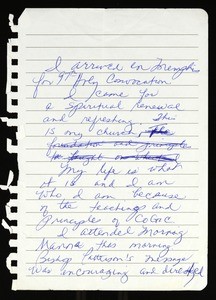 I arrived in Memphis
for 97th Holy Convocation
I came for
a spiritual renewal
and refreshing. This
is my church, the
foundation and principles
is taught
My life is what
it is and I am
who I am because
of the teachings and
principles of COGIC
I attended Morning
Manna this morning
Bishop Patterson's message
was encouraging and directed